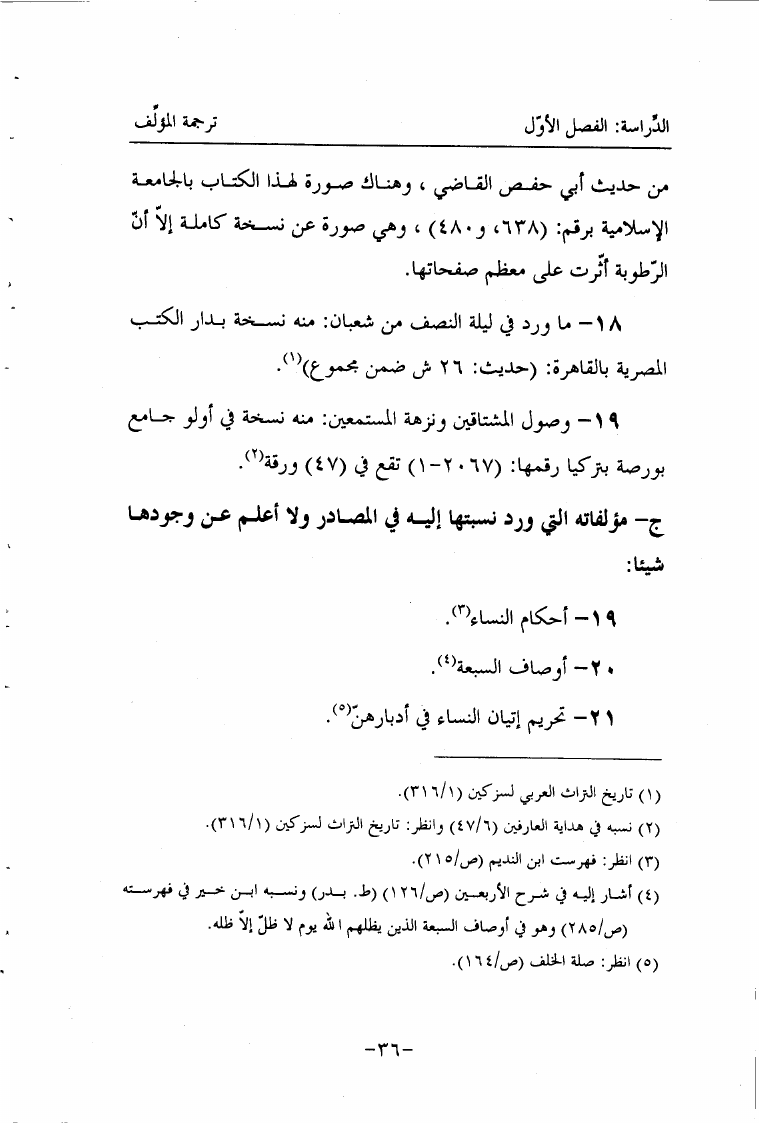 الدِّراسة: الفصل الأوّل ترجمة المؤلِّف
من حديث أبي حفص القاضي ، وهناك صورة لهذا الكتاب بالجامعة
الإسلامية برقم: (٦٣٨، و٤٨٠) ، وهي صورة عن نسخة كاملة إلاّ أنّ
الرّطوبة أثّرت على معظم صفحاتها.
١٨- ما ورد في ليلة النصف من شعبان: منه نسخة بدار الكتب
المصرية بالقاهرة: (حديث: ٢٦ ش ضمن مجموع)(١).
١٩- وصول المشتاقين ونزهة المستمعين: منه نسخة في أولو جامع
بورصة بتركيا رقمها: (٢٠٦٧-١) تقع في (٤٧) ورقة(٢).
ج- مؤلفاته التي ورد نسبتها إليه في المصادر ولا أعلم عن وجودها
شيئا:
١٩- أحكام النساء(٣).
٢٠- أوصاف السبعة(٤).
٢١- تحريم إتيان النساء في أدبارهنّ(٥).
(١) تاريخ التراث العربي لسزكين (٣١٦/١).
(٢) نسبه في هداية العارفين (٤٧/٦) وانظر: تاريخ التراث لسزكين (٣١٦/١).
(٣) انظر: فهرست ابن النديم (ص/٢١٥).
(٤) أشار إليه في شرح الأربعين (ص/١٢٦) (ط. بدر) ونسبه ابن خير في فهرسته
(ص/٢٨٥) وهو في أوصاف السبعة الذين يظلهم الله يوم لا ظلّ إلاّ ظله.
(٥) انظر: صلة الخلف (ص/١٦٤).
-٣٦-